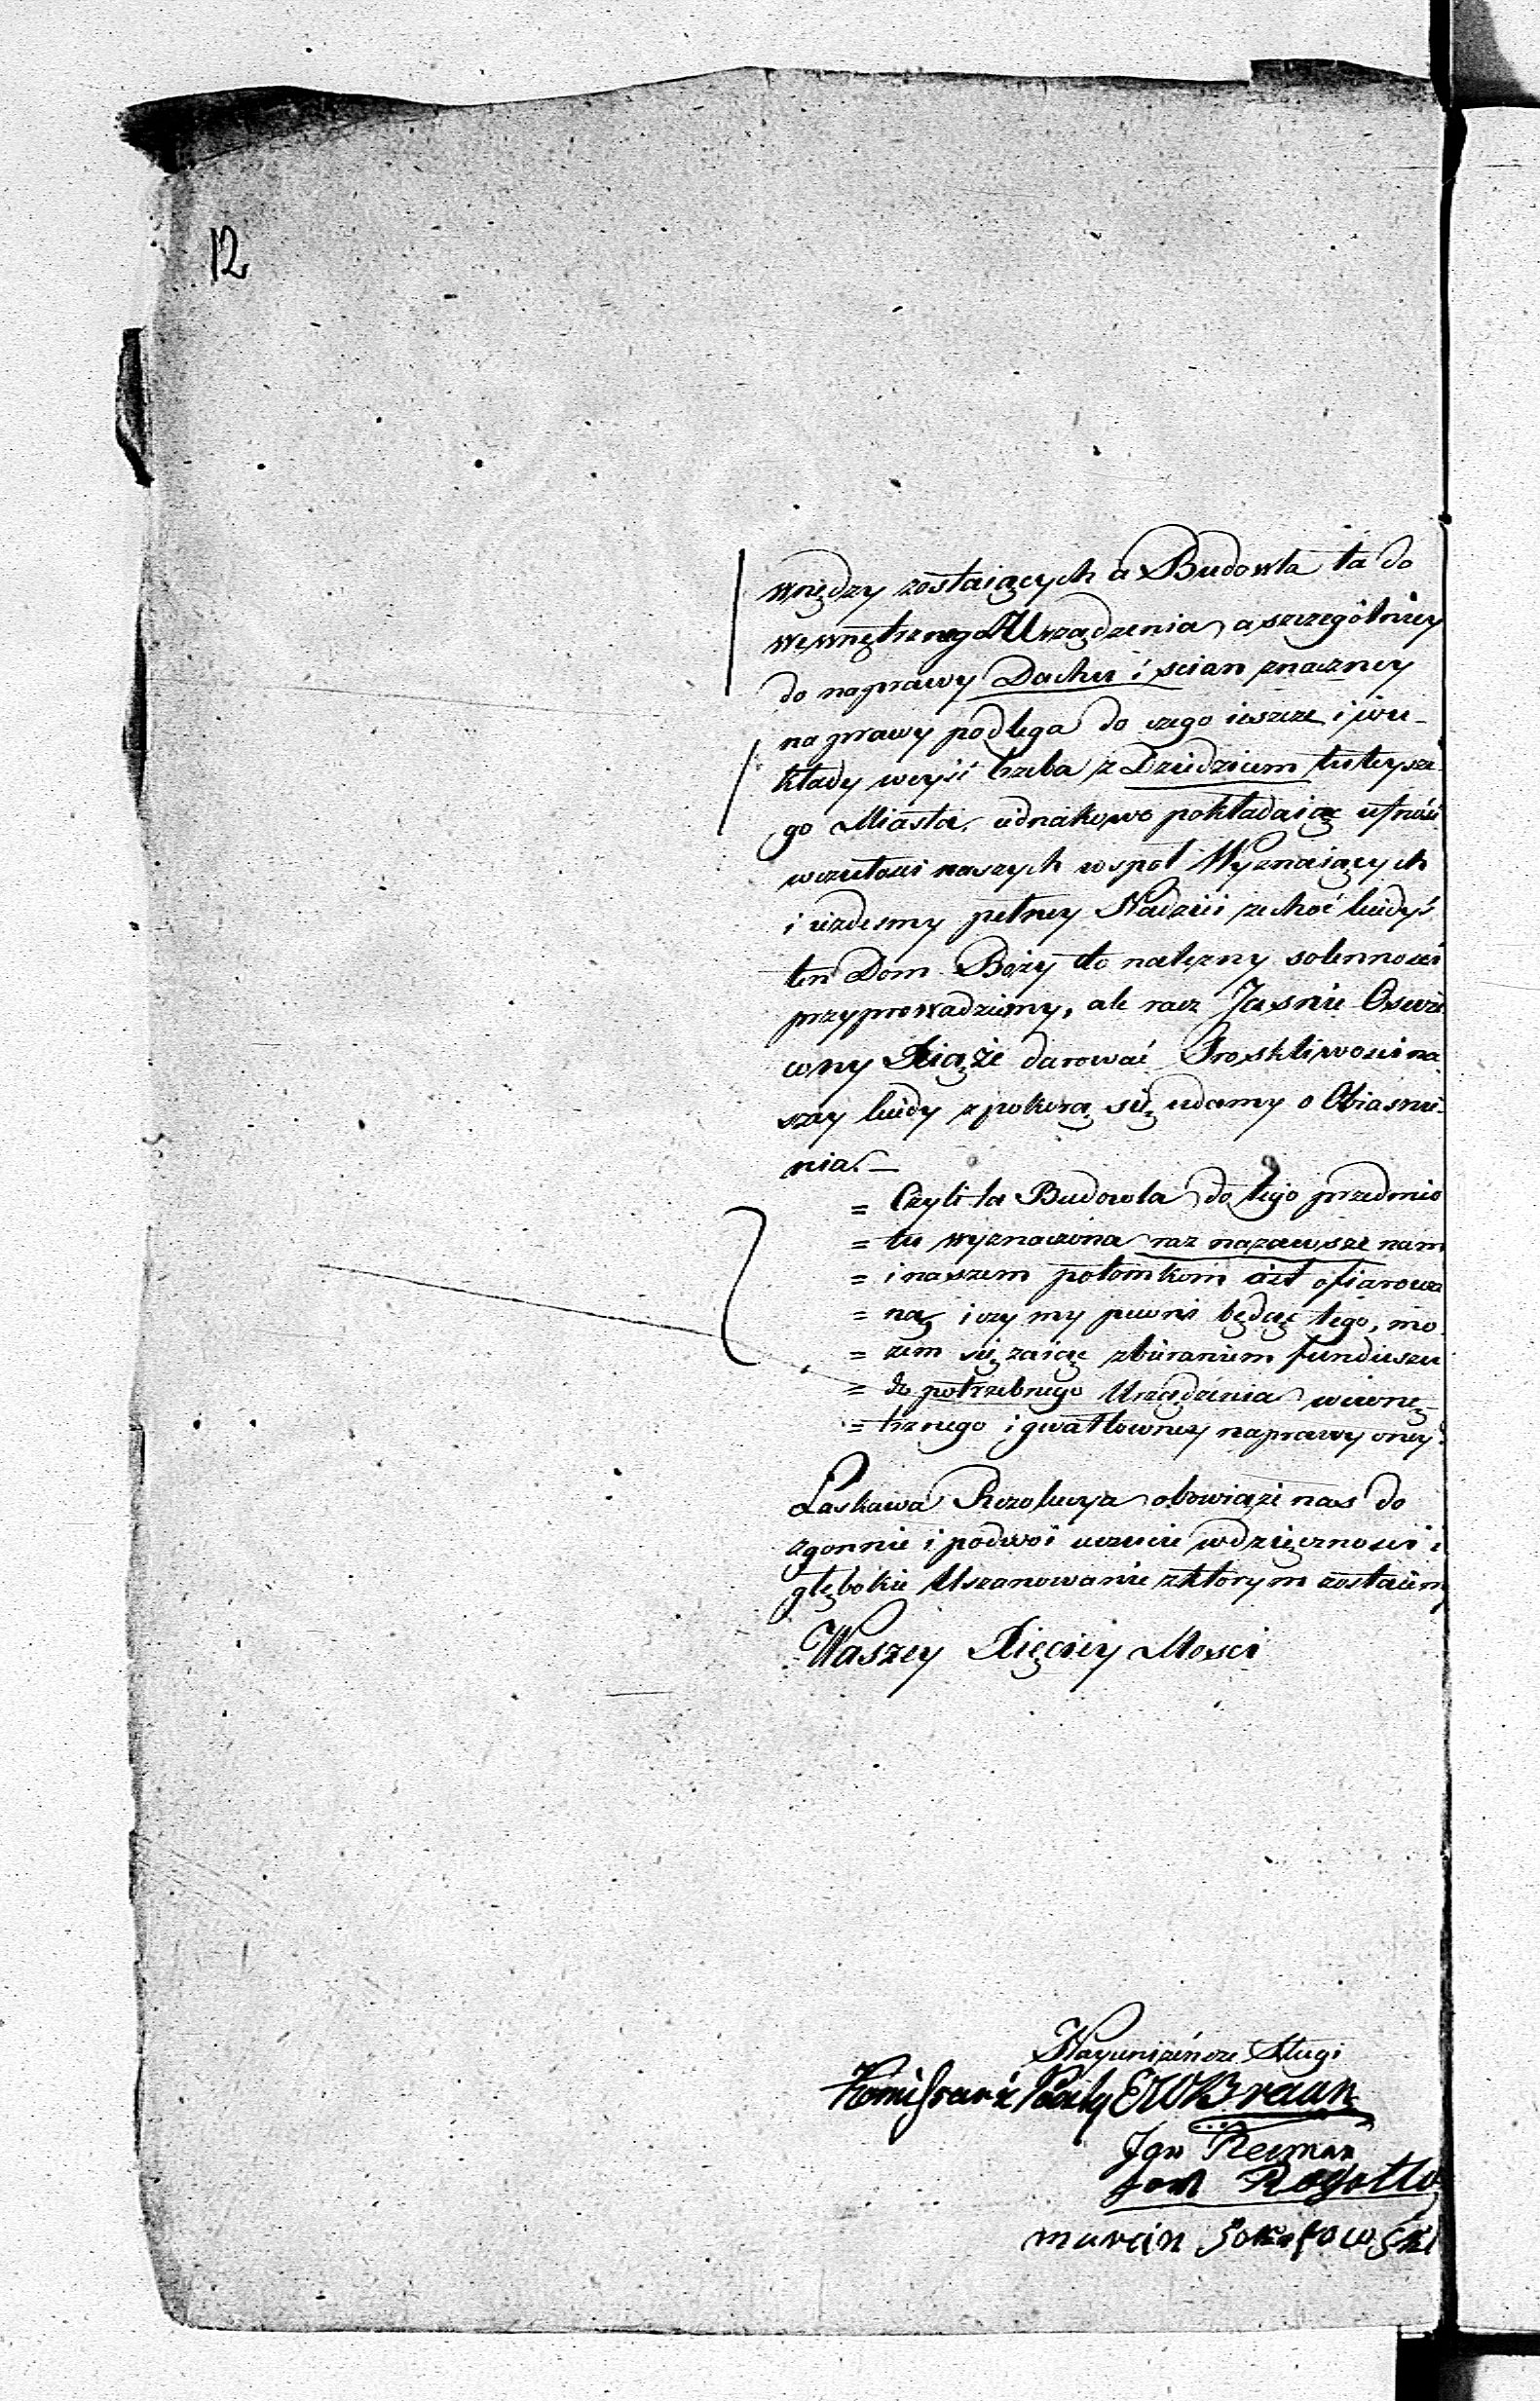 12
wnędzy zostaiących a Budowla ta do
wewnętrznego Urządzenia a szczegolniey
do naprawy Dachu i scian znaczney
naprawy podlega do czego ieszcze i wu-
kłady weyść trzeba z Dziedzicem tuteysze
go Miasta, iednakowo pokładaiąc ufność
wczułości naszych wspoł Wyznaiących
i iezdesmy pełney Nadziei ze choć kiedyś
ten Dom Boży do należny solennosci
przyprowadziemy, ale racz Jasnie Oswie
cony Xiąże darować Troskliwosci na
szey kiedy z pokorą się udamy o Obiasnie-
nia. —
= Czyli ta Budowla do tego przedmio
= tu wyznaczona raz nazawsze nam
= i naszem potomkom iest ofiarowa
= ną i czy my pewni będąc tego, mo
= zem się zaiąc zbieraniem funduszu
= do potrzebnego Urządzenia wewnę-
= trznego i gwałtowney naprawy oney.
Łaskawa Rezolucya obowiąże nas do
zgonnie i podwoi uczucie wdzięcznosci i
głębokie Uszanowanie z ktorym zostaiem
Waszey Xięciey Mosci
Nayunizeńsze Sługi
Komissarz Poczty EWBraun
Jan Reyman
Marcin Sokołowski